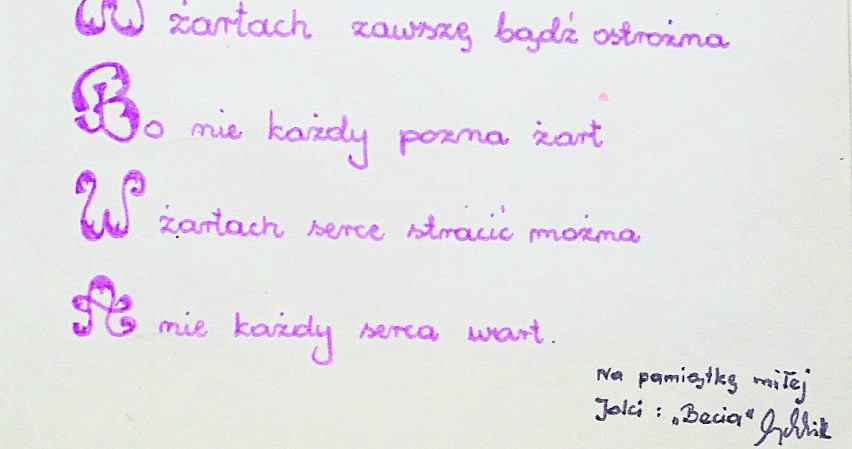 W żartach zawszę bądź ostrożna
Bo nie każdy pozna żart
W żartach serce stracić można
A nie każdy serca wart.
Na pamiątkę miłej
Jolci : „Becia"